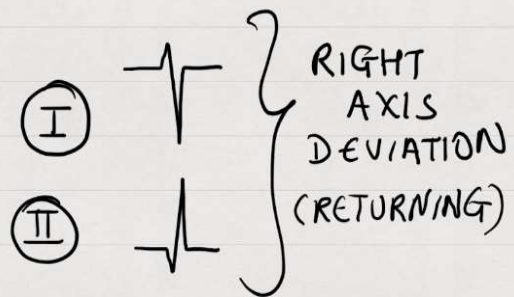 I
II
RIGHT
AXIS
DEVIATION
(RETURNING)